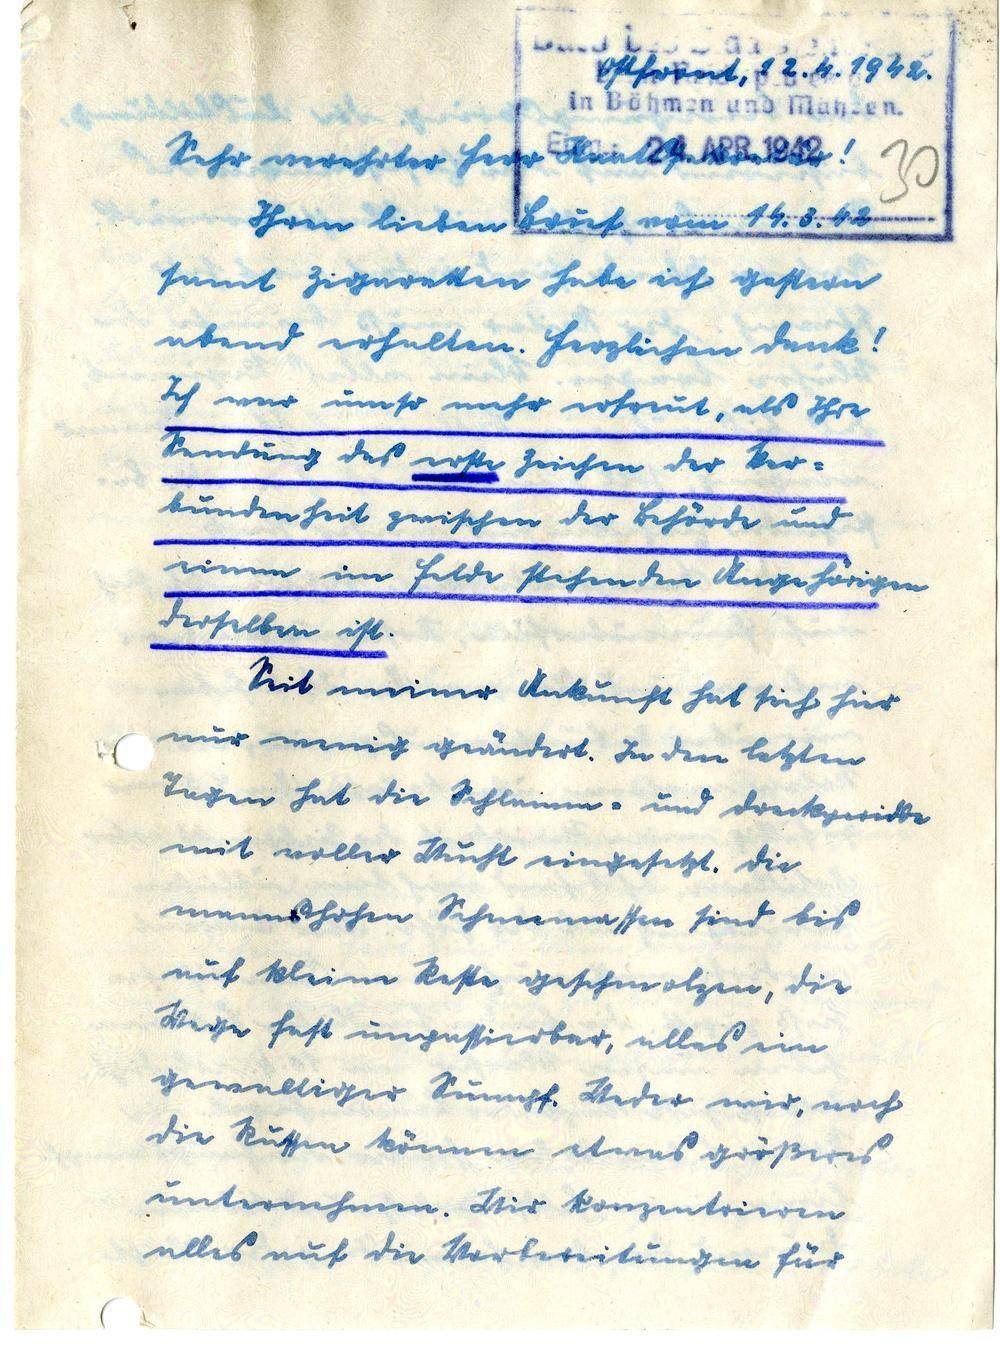 Ostfront, 12.4.1942.
in Böhmen und Mähren.
24. APR. 1942
30
Sehr verehrter Herr Staatssekretär!
Ihren lieben Brief vom 14.3.42
samt Zigaretten habe ich gestern
abend erhalten. Herzlichen Dank!
Ich war umso mehr erfreut, als Ihre
Sendung das erste Zeichen der Ver=
bundenheit zwischen der Behörde und
einem im Felde stehenden Angehörigen
derselben ist.
Seit meiner Ankunft hat sich hier
nur wenig geändert. In den letzten
Tagen hat die Schlamm= und Dreckperiode
mit voller Wucht eingesetzt. Die
mannshohen Schneemassen sind bis
auf kleine Reste geschmolzen, die
Wege fast unpassierbar, alles ein
gewaltiger Sumpf. Weder wir, noch
die Russen können etwas größeres
unternehmen. Wir konzentrieren
alles auf die Vorbereitungen für